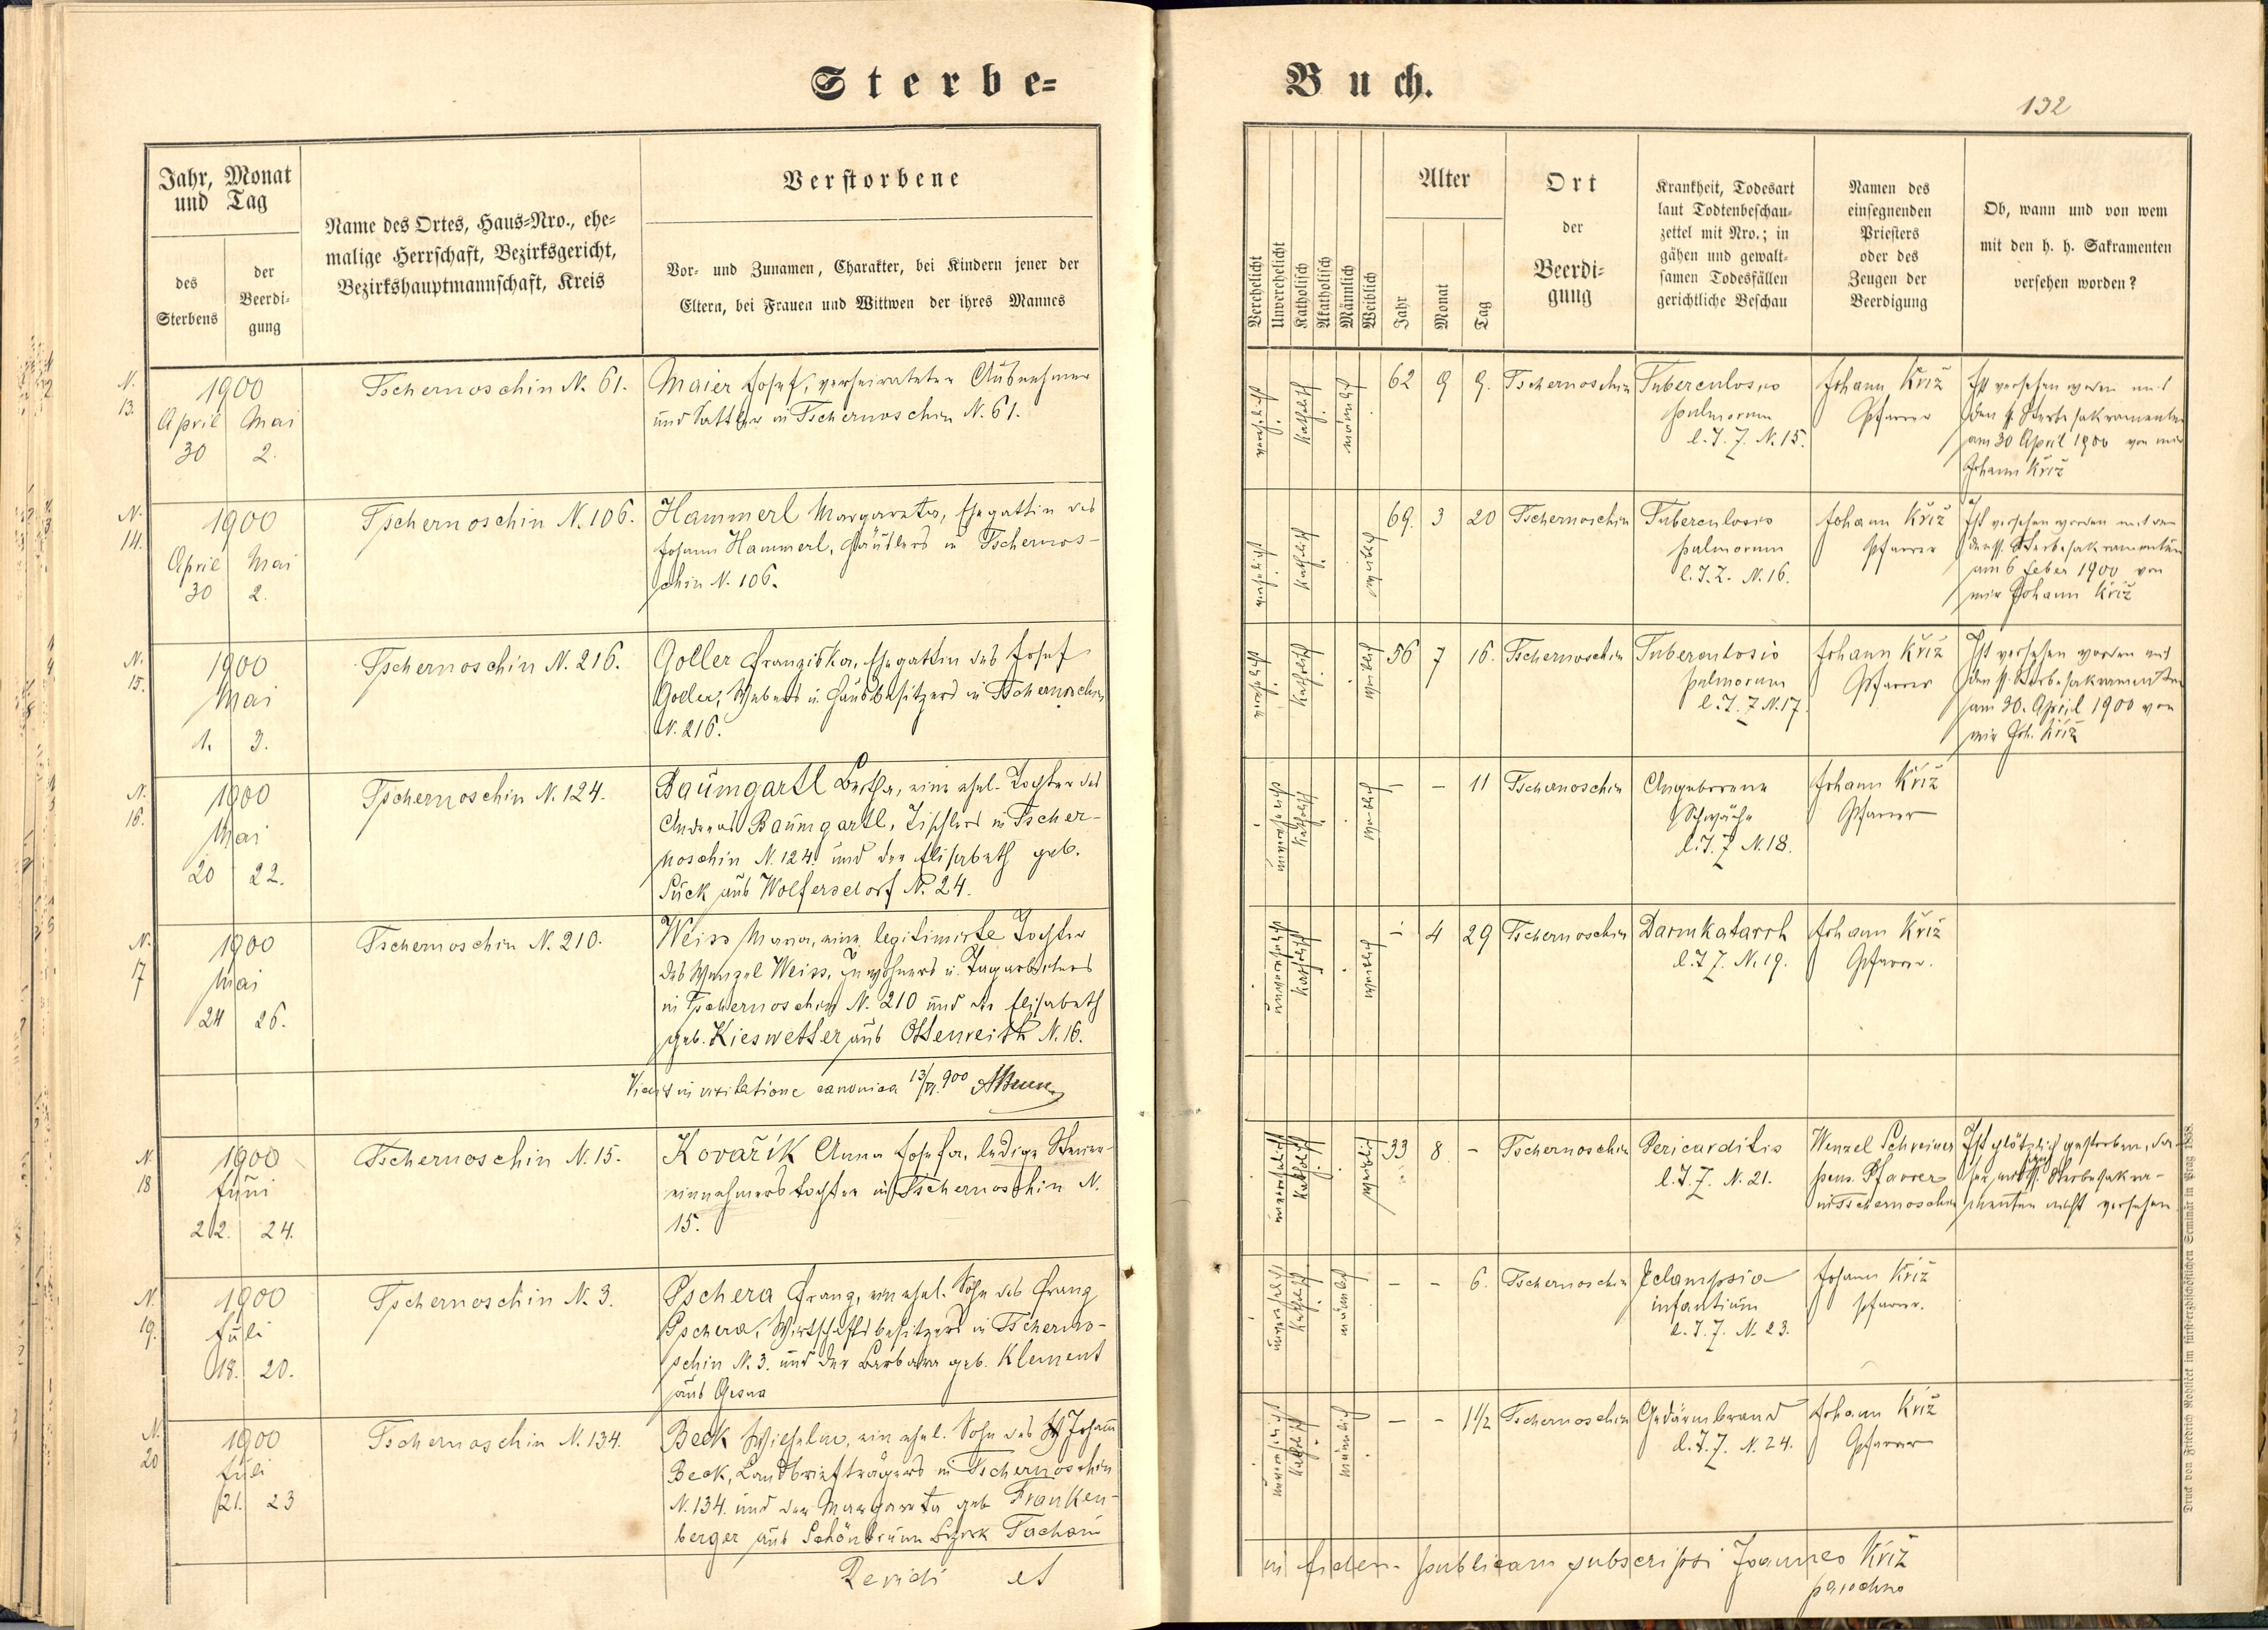 Sterbe=
Buch.
132
Jahr, Monat
und Tag
des
Sterbens
der
Beerdi-
gung
Name des Ortes, Haus=Nro., ehe=
malige Herrschaft, Bezirksgericht,
Bezirkshauptmannschaft, Kreis
Verstorbene
Vor- und Zunamen, Charakter, bei Kindern jener der
Eltern, bei Frauen und Wittwen der ihres Mannes
Verehelicht
Unverehelicht
Katholisch
Akatholisch
Männlich
Weiblich
Alter
Jahr
Monat
Tag
Ort
der
Beerdi=
gung
Krankheit, Todesart
laut Todtenbeschau-
zettel mit Nro.; in
gähen und gewalt-
samen Todesfällen
gerichtliche Beschau
Namen des
einsegnenden
Priesters
oder des
Zeugen der
Beerdigung
Ob, wann und von wem
mit den h. h. Sakramenten
versehen worden?
N. 13.
1900
April Mai
30 2.
Tschernoschin N. 61.
Maier Josef, verheirateter Ausnehmer
und Sattler in Tschernoschin N. 61.
verehelicht
katholisch
männlich
62 9 9.
Tschernoschin
Tuberculosis
pulmorum
l. T. Z. N. 15.
Johann Kříž
Pfarrer
Ist versehen worden mit
den h. Sterbesakramenten
am 30 April 1900 von mir
Johann Kříž
N. 14.
1900
April Mai
30 2.
Tschernoschin N. 106.
Hammerl Margareta, Ehegattin des
Johann Hammerl, Häuslers in Tschernos-
chin N. 106.
verehelicht
katholisch
weiblich
69. 3 20
Tschernoschin
Tuberculosis
pulmorum
l. T. Z. N. 16.
Johann Kříž
Pfarrer
Ist versehen worden mit
den hl. Sterbesakramenten
am 6 Feber 1900 von
mir Johann Kříž
N. 15.
1900
Mai
1. 3.
Tschernoschin N. 216.
Goller Franziska, Ehegattin des Josef
Goller, Webers u. Hausbesitzers in Tschernoschin
N. 216.
verehelicht
katholisch
weiblich
56 7 16.
Tschernoschin
Tuberculosis
pulmorum
l. T. Z N. 17.
Johann Kříž
Pfarrer
Ist versehen worden mit
den hl. Sterbesakramenten
am 30. April 1900 von
mir Joh. Kříž
N. 16.
1900
Mai
20 22.
Tschernoschin N. 124.
Baumgartl Bertha, eine ehel. Tochter des
Andreas Baumgartl, Tischlers in Tscher-
noschin N. 124. und der Elisabeth geb.
Sück aus Wolfersdorf N. 24.
unverehelicht
katholisch
weiblich
- - 11
Tschernoschin
Angeborene
Schwäche
l. T. Z N. 18.
Johann Kříž
Pfarrer
N. 17
1900
Mai
24 26.
Tschernoschin N. 210.
Weiss Maria, eine legitimirte Tochter
des Wenzel Weiss, Inwohners u. Tagarbeiters
in Tschernoschin N. 210 und der Elisabeth
geb. Kieswetter aus Ottenreith N. 16.
unverehelicht
katholisch
weiblich
- 4 29
Tschernoschin
Darmkatarrh
l. T. Z. N. 19.
Johann Kříž
Pfarrer.
in visitatione canonica 13/VI. 900
N. 18
1900
Juni
22. 24.
Tschernoschin N. 15.
Kovařík Anna Josefa, ledige Steuer-
einnehmerstochter in Tschernoschin N.
15.
unverehelicht
katholisch
weiblich
33 8 -
Tschernoschin
Pericarditis
l. T. Z. N. 21.
Wenzel Schreiner
pens. Pfarrer
in Tschernoschin
Ist plötzlich gestorben, da-
her mit den hl. Sterbesakra-
menten nicht versehen
N. 19.
1900
Juli
18. 20.
Tschernoschin N. 3.
Pschera Franz, ein ehel. Sohn des Franz
Pschera, Wirtschaftsbesitzers in Tscherno-
schin N. 3. und der Barbara geb. Klement
aus Gesna
unverehelicht
katholisch
männlich
- - 6.
Tschernoschin
Eclampsia
infantium
l. T. Z. N. 23.
Johann Kříž
Pfarrer.
N. 20
1900
Juli
21. 23
Tschernoschin N. 134.
Beck Wilhelm, ein ehel. Sohn des Johann
Beck, Landbriefträgers in Tschernoschin
N. 134. und der Margareta geb. Franken-
berger aus Schönbrunn Bezirk Tachau
unverehelicht
katholisch
männlich
- - 1 1/2
Tschernoschin
Gedärmbrand
l. T. Z. N. 24.
Johann Kříž
Pfarrer
Revidi et
in fidem publicam subscripsi Joannes Kříž
parochus
Druck von Friedrich Rohliček im fürsterzbischöflichen Seminär in Prag 1868.